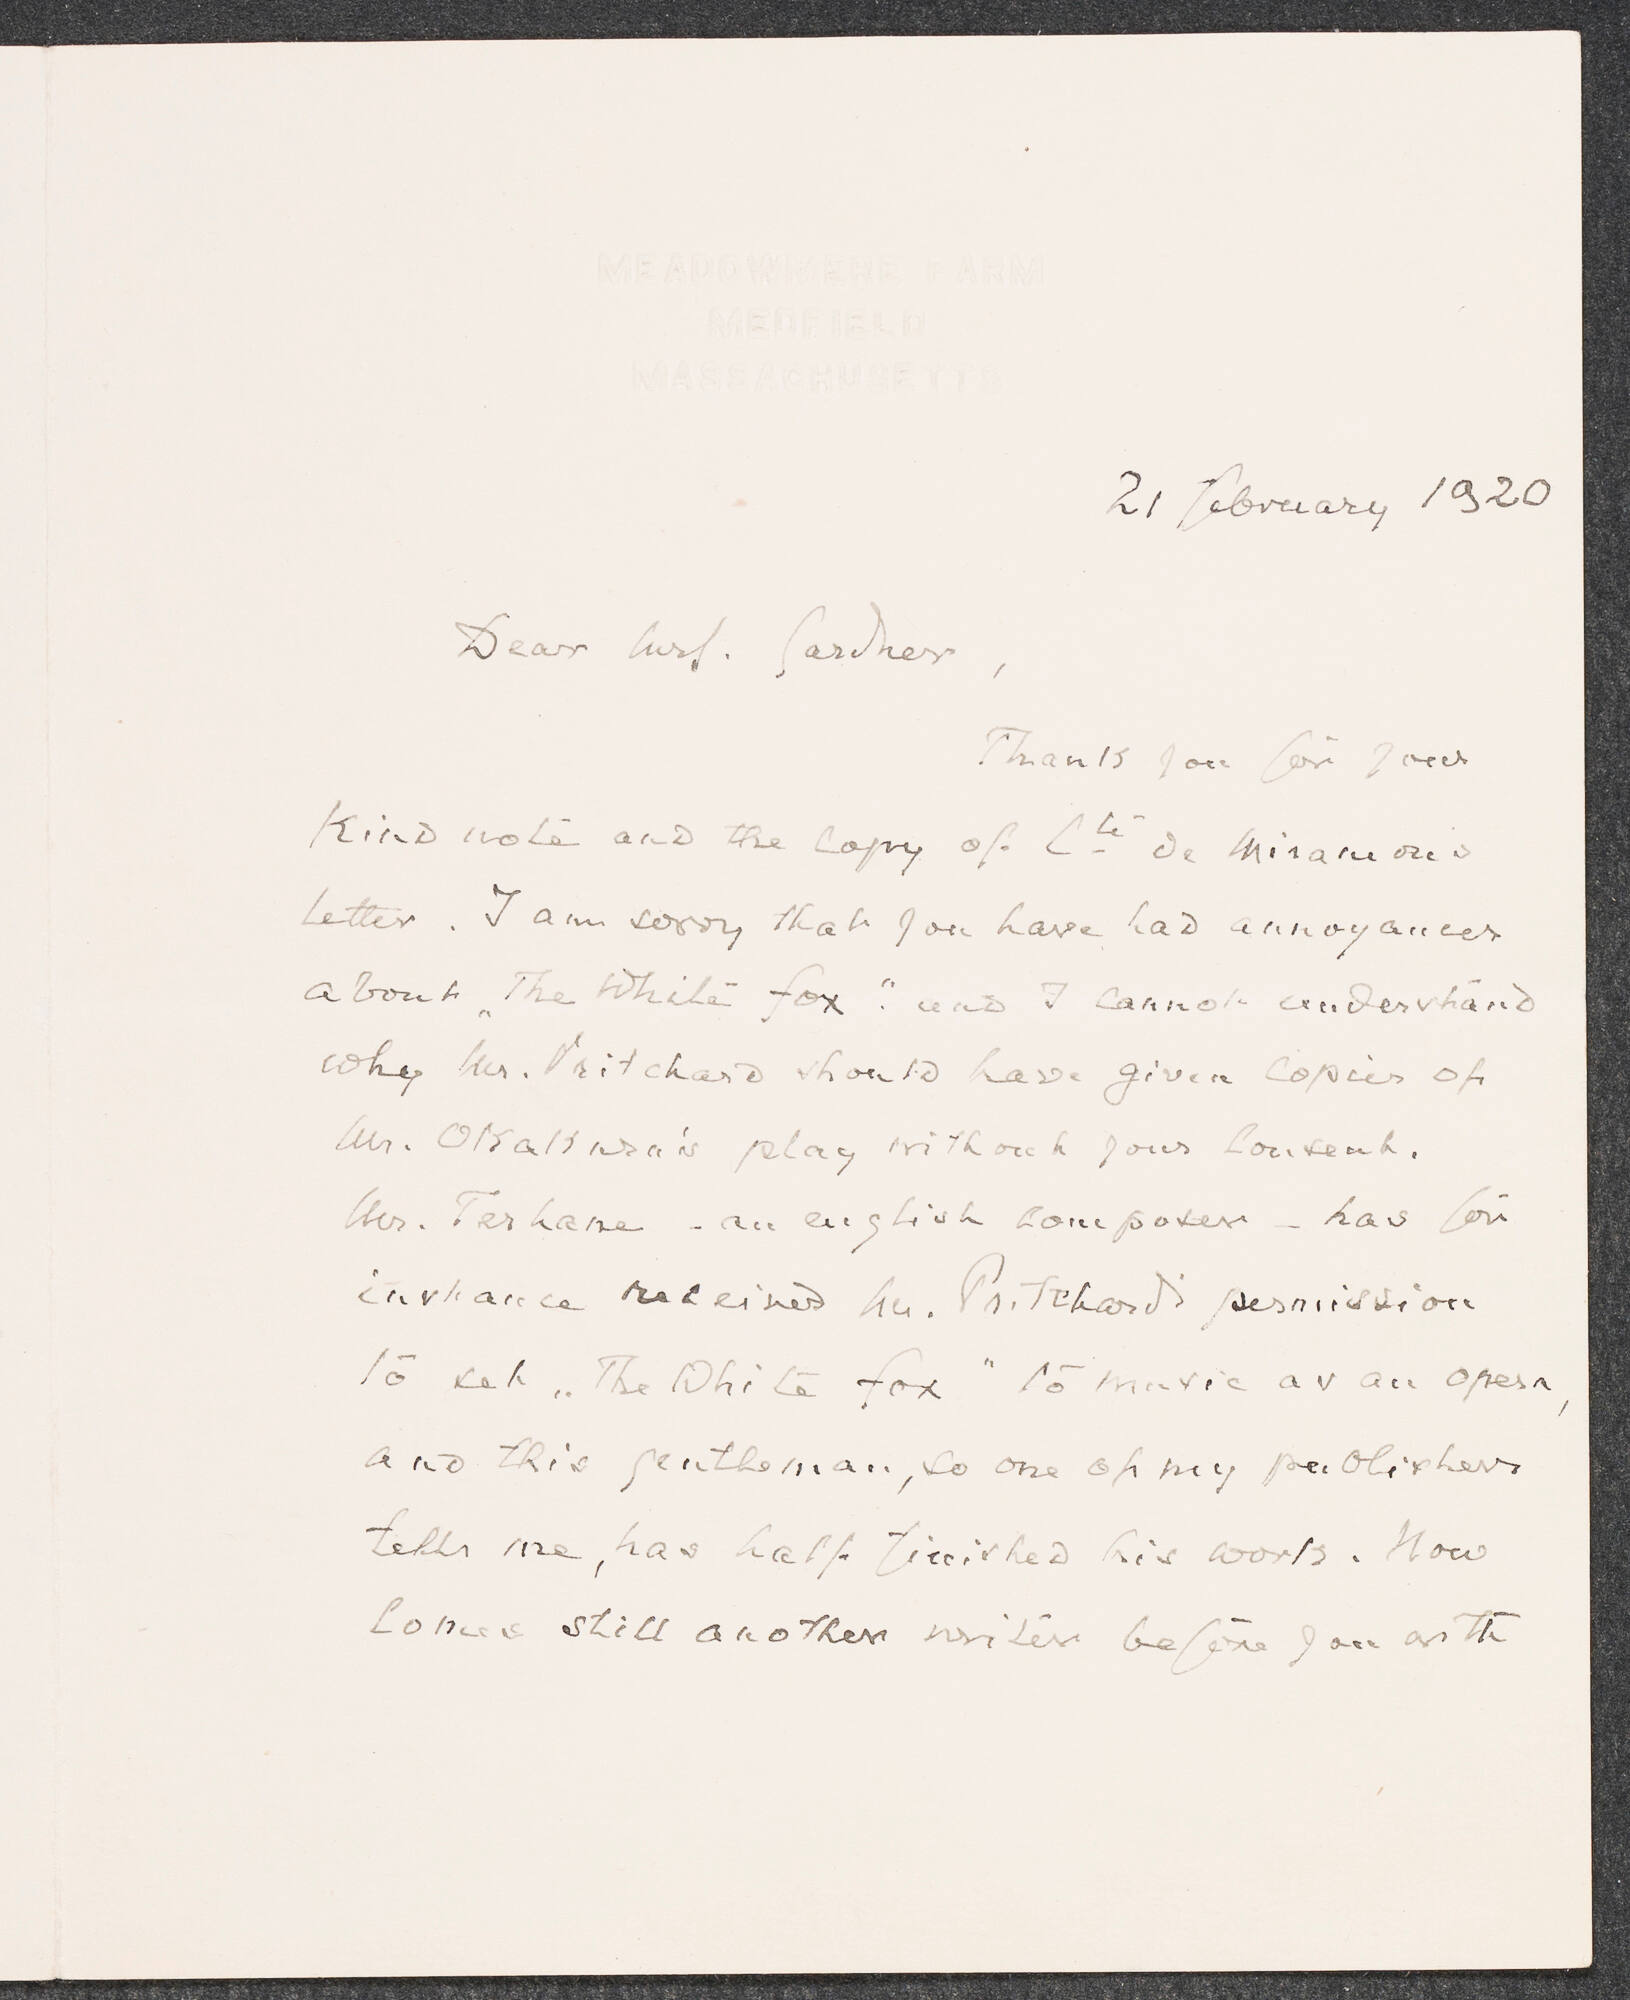 MEADOWMERE FARM
MEDFIELD
MASSACHUSETTS
21 february 1920
Dear Mrs. Gardner,
Thank you for your
kind note and the copy of Cte de Miramon's
letter. I am sorry that you have had annoyances
about „The White fox" and I cannot understand
why Mr. Pritchard should have given copies of
Mr. Okakura's play without your consent.
Mr. - an english composer - has for
instance received Mr. Pritchard's permission
to set „The White fox" to music as an opera,
and this gentleman, so one of my publishers
tells me, has half finished his work. Now
comes still another writer before you with